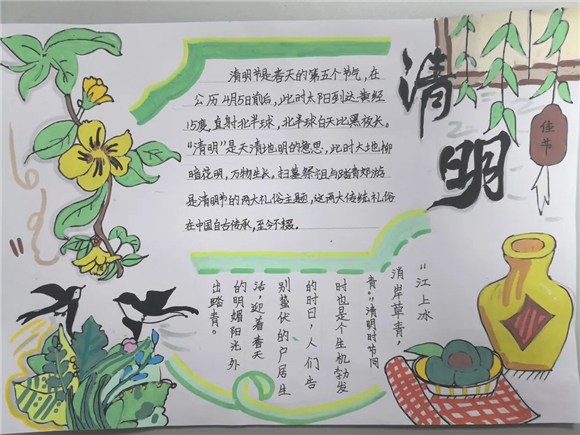 清明
佳节
清明节是春天的第五个节气，在
公历4月5日前后，此时太阳到达黄经
15度，直射北半球，北半球白天比黑夜长。
“清明”是天清地明的意思，此时大地柳
暗花明，万物生长。扫墓祭祖与踏青郊游
是清明节的两大礼俗主题，这两大传统礼俗
在中国自古传承，至今不辍。
“江上冰
消岸草青，
青。”清明时节同
时也是个生机勃发
的时日，人们告
别蛰伏的户居生
活，迎着春天
的明媚阳光外
出踏青。